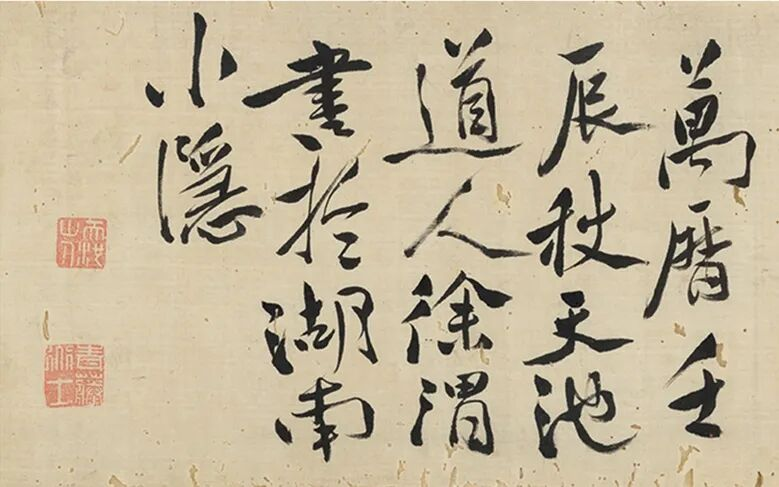 萬曆壬
辰秋天池
道人徐渭
書於湖南
小隱